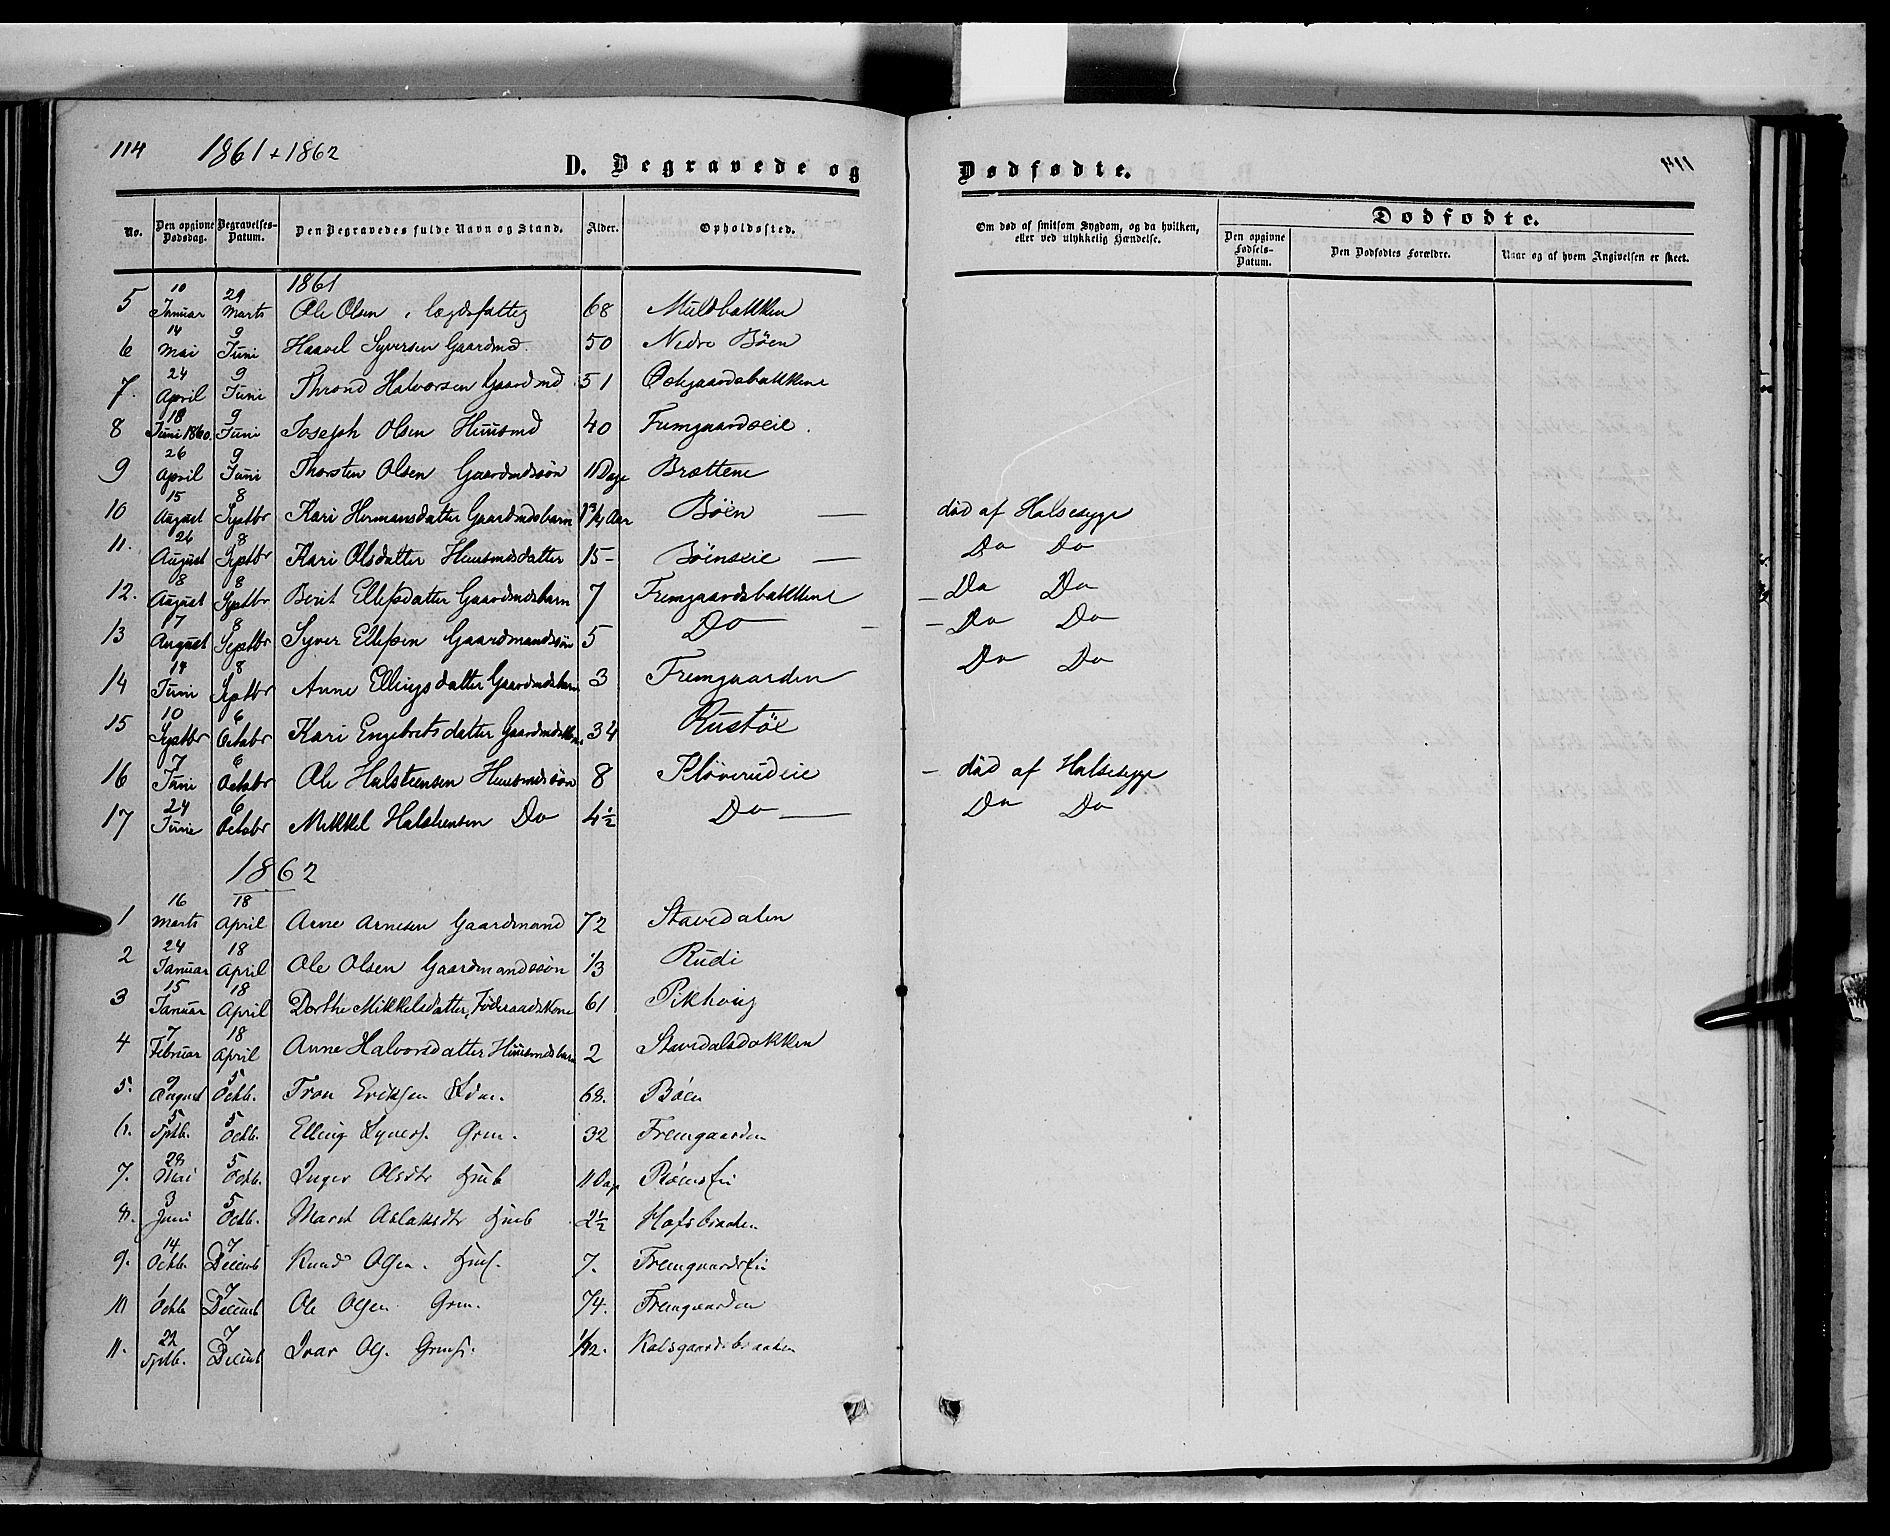 114 1861 + 1862
D. Begravede og Dødfødte. 114
No. Den opgivne Dødsdag. Begravelses-Datum. Den Begravedes fulde Navn og Stand. Alder. Opholdssted. Om død af smitsom Sygdom, og da hvilken, eller ved ulykkelig Hændelse. Dødfødte.
Den opgivne Fødsels-Datum. Den Dødfødtes Forældre. Naar og af hvem Angivelsen er skeet.
1861
5 10 Januar 29 Marts Ole Olsen, lægdsfattig 68 Muldbakken
6 14 Mai 9 Juni Haavel Syversen Gaardmd. 50 Nedre Bøen
7. 24 April 9 Juni Thrond Halvorsen Gaardmd 51 Ødegaardsbakkene
8 18 Juni 1860. 9 Juni Joseph Olsen Huusmd 40 Fremgaardseie.
9 26 April 9 Juni Thorsten Olsen Gaardmdssøn 11 Dage Brættene
10 15 August 8 Septbr Kari Hermansdatter Gaardmdsbarn 1 3/4 Aar Bøen — død af Halsesyge
11. 26 August 8 Septbr Kari Olsdatter Huusmdsdatter 15 - Bøenseie — Do Do
12. 8 August 8 Septbr Berit Ellefsdatter Gaardmdsbarn 7 Fremgaardsbakkene - Do Do
13 17 August 8 Septbr Syver Ellefsen Gaardmandssøn 5 Do - - Do Do
14 14 Juni 8 Septbr Anne Ellingsdatter Gaardmdsbarn 3 Fremgaarden Do Do
15 10 Septbr 6 Octobr Kari Engebretsdatter Gaardmdskone 34 Rustøe
16 7 Juni 6 Octobr Ole Halsteensen Huusmdssøn 8 Kløverudeie - død af Halsesyge
17 24 Junie 6 Octobr Mikkel Halsteensen Do 4 1/2 Do — Do Do
1862
1 16 Marts 18 April Arne Arnesen Gaardmand 72 Stavedalen
2 24 Januar 18 April Ole Olsen Gaardmandssøn 1/3 Rudi
3 15 Januar 18 April Dorthe Mikkelsdatter, Føderaadskone 61 Pikhoug
4 7 Februar 18 April Anne Halvorsdatter Huusmdsbarn 2 Stavedalsdokken
5. 9 August 5 Octb. Tron Eriksen 68. Bøen
6. 5 Sptb. 5 Octb. Elling Syvers. Grm. 32 Fremgaarden
7. 28 Mai 5 Octb. Inger Olsdtr Hmb 11 Dag
8. 3 Juni 5 Octb. Marit Aslaksdtr Hmb 2 1/2 Hofsbraaten
9. 14 Octb. 7 Decemb Knud Olsen. Hms. 7. Fremgaardsei
10 1 Octb 7 Decemb Ole Olsen Grm. 74. Fremgaarden
11. 22 Sptb. 7 Decemb Ivar Ols. Grms. 1/12. Kolsgaardsbraaten